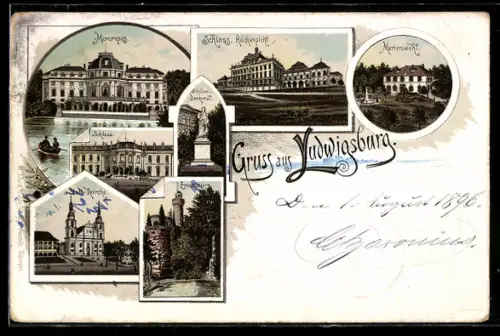 Monrepos.
Schloss. Rückansicht.
Marienwahl.
Schiller-
Denkmal.
Schloss.
Gruss aus Ludwigsburg.
Kirche.
Emichsburg.
Den 1. August 1896.